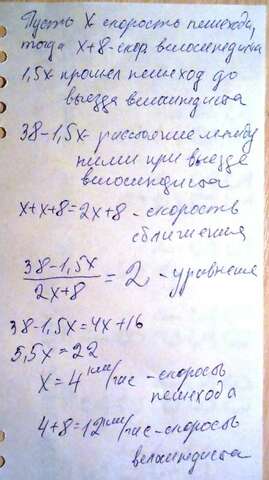 Пусть x скорость пешехода,
тогда x+8-скор велосипедиста
1,5x прошел пешеход до
выезда велосипедиста
38-1,5x-расстояние между
ними при выезде
велосипедиста
x+x+8=2x+8-скорость
сближения
38-1,5x / 2x+8 = 2 - уравнение
38-1,5x=4x+16
5,5x=22
x=4 км/час-скорость
пешехода
4+8=12 км/час-скорость
велосипедиста